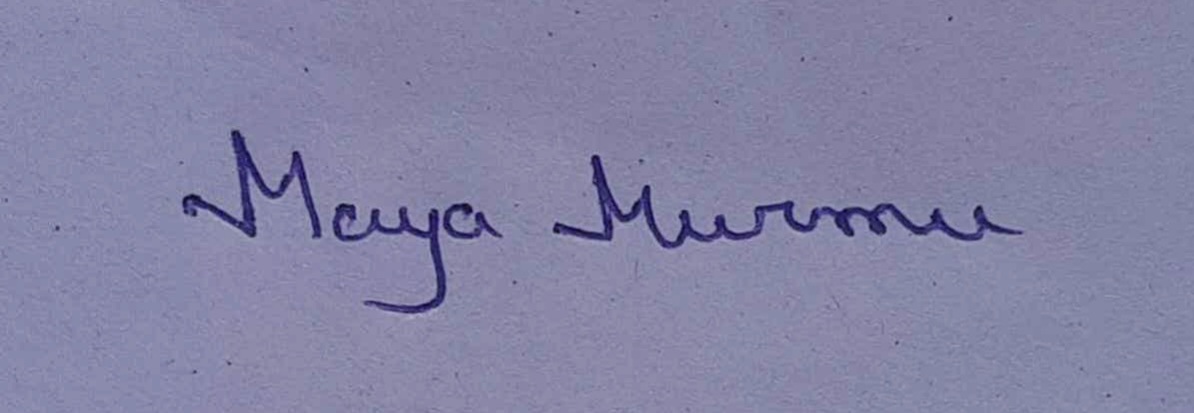 Maya Murmu